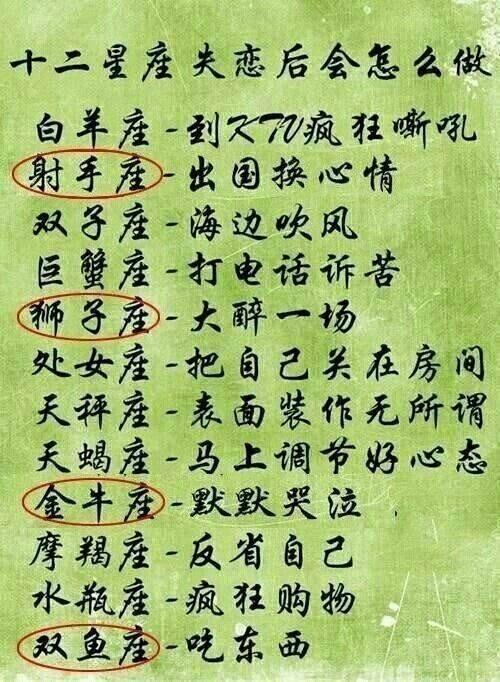 十二星座失恋后会怎么做
白羊座-到KTV疯狂嘶吼
射手座-出国换心情
双子座-海边吹风
巨蟹座-打电话诉苦
狮子座-大醉一场
处女座-把自己关在房间
天秤座-表面装作无所谓
天蝎座-马上调节好心态
金牛座-默默哭泣
摩羯座-反省自己
水瓶座-疯狂购物
双鱼座-吃东西